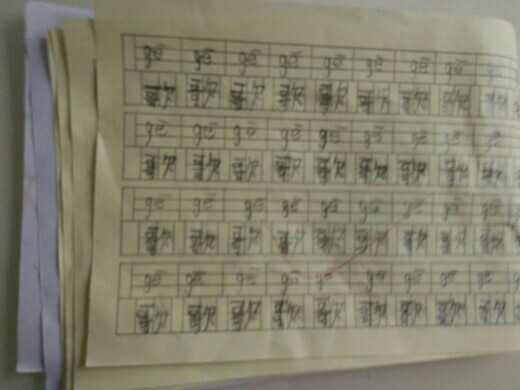 gē gē gē gē gē gē gē gē gē
歌 歌 歌 歌 歌 歌 歌 歌 歌
gē gē gē gē gē gē gē gē gē
歌 歌 歌 歌 歌 歌 歌 歌 歌
gē gē gē gē gē gē gē gē gē
歌 歌 歌 歌 歌 歌 歌 歌 歌
gē gē gē gē gē gē gē gē gē
歌 歌 歌 歌 歌 歌 歌 歌 歌